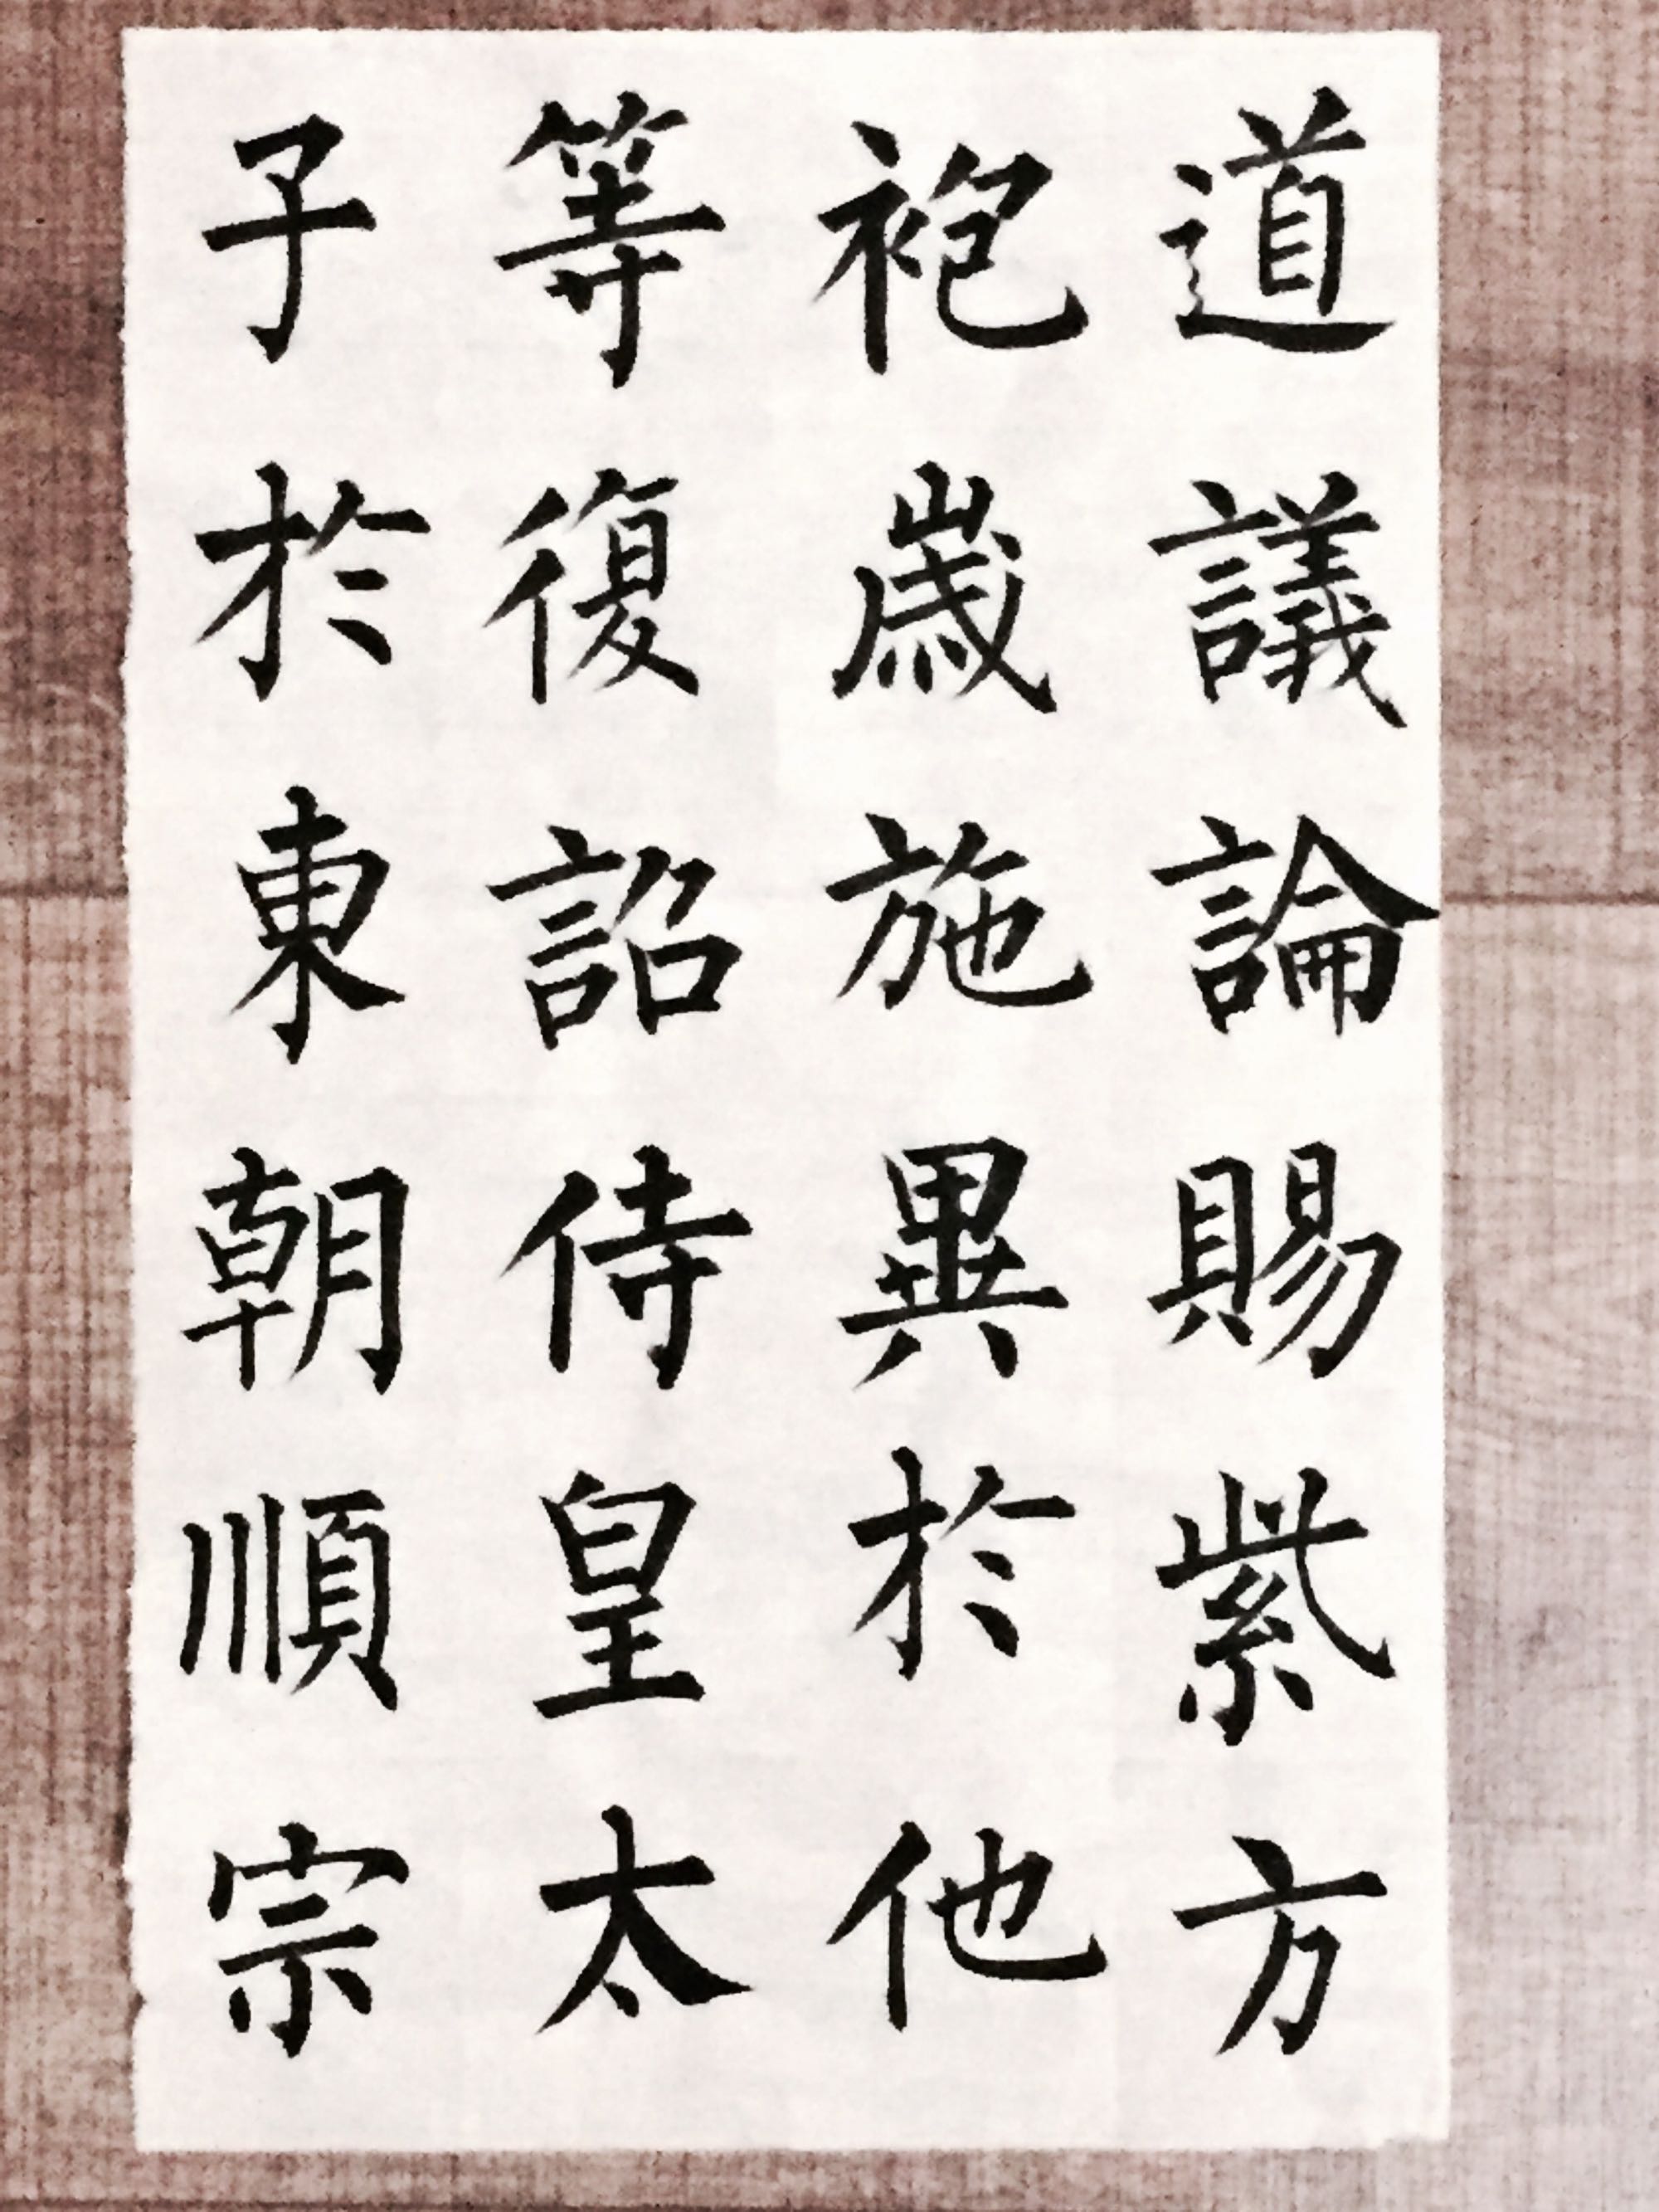 道議論賜紫方
袍歳施異於他
等復詔侍皇太
子於東朝順宗